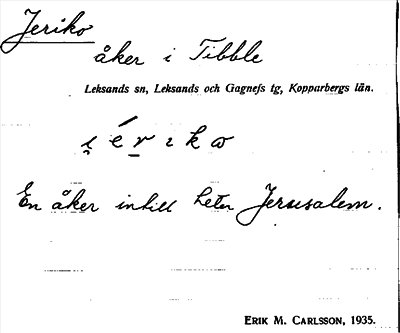 Jeriko
åker i Tibble
Leksands sn, Leksands och Gagnefs tg, Kopparbergs län.
i̯ é r ı k ω
En åker intill heter Jerusalem.
ERIK M. CARLSSON, 1935.